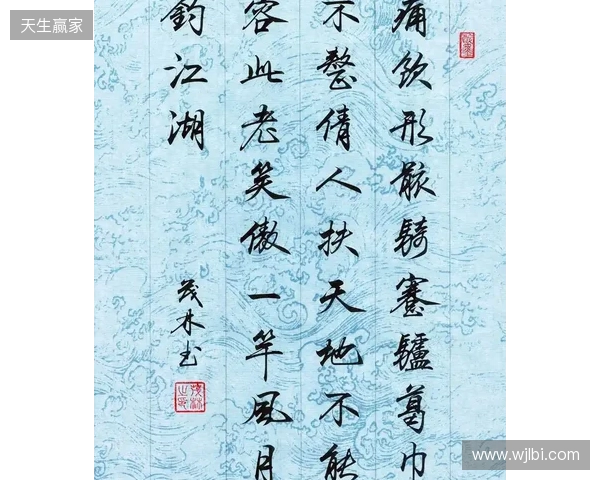 天生赢家
痛飲形骸騎蹇驢葛巾
不整倩人扶天地不能
容此老笑傲一竿風月
釣江湖
茂林书
www.wjlbi.com